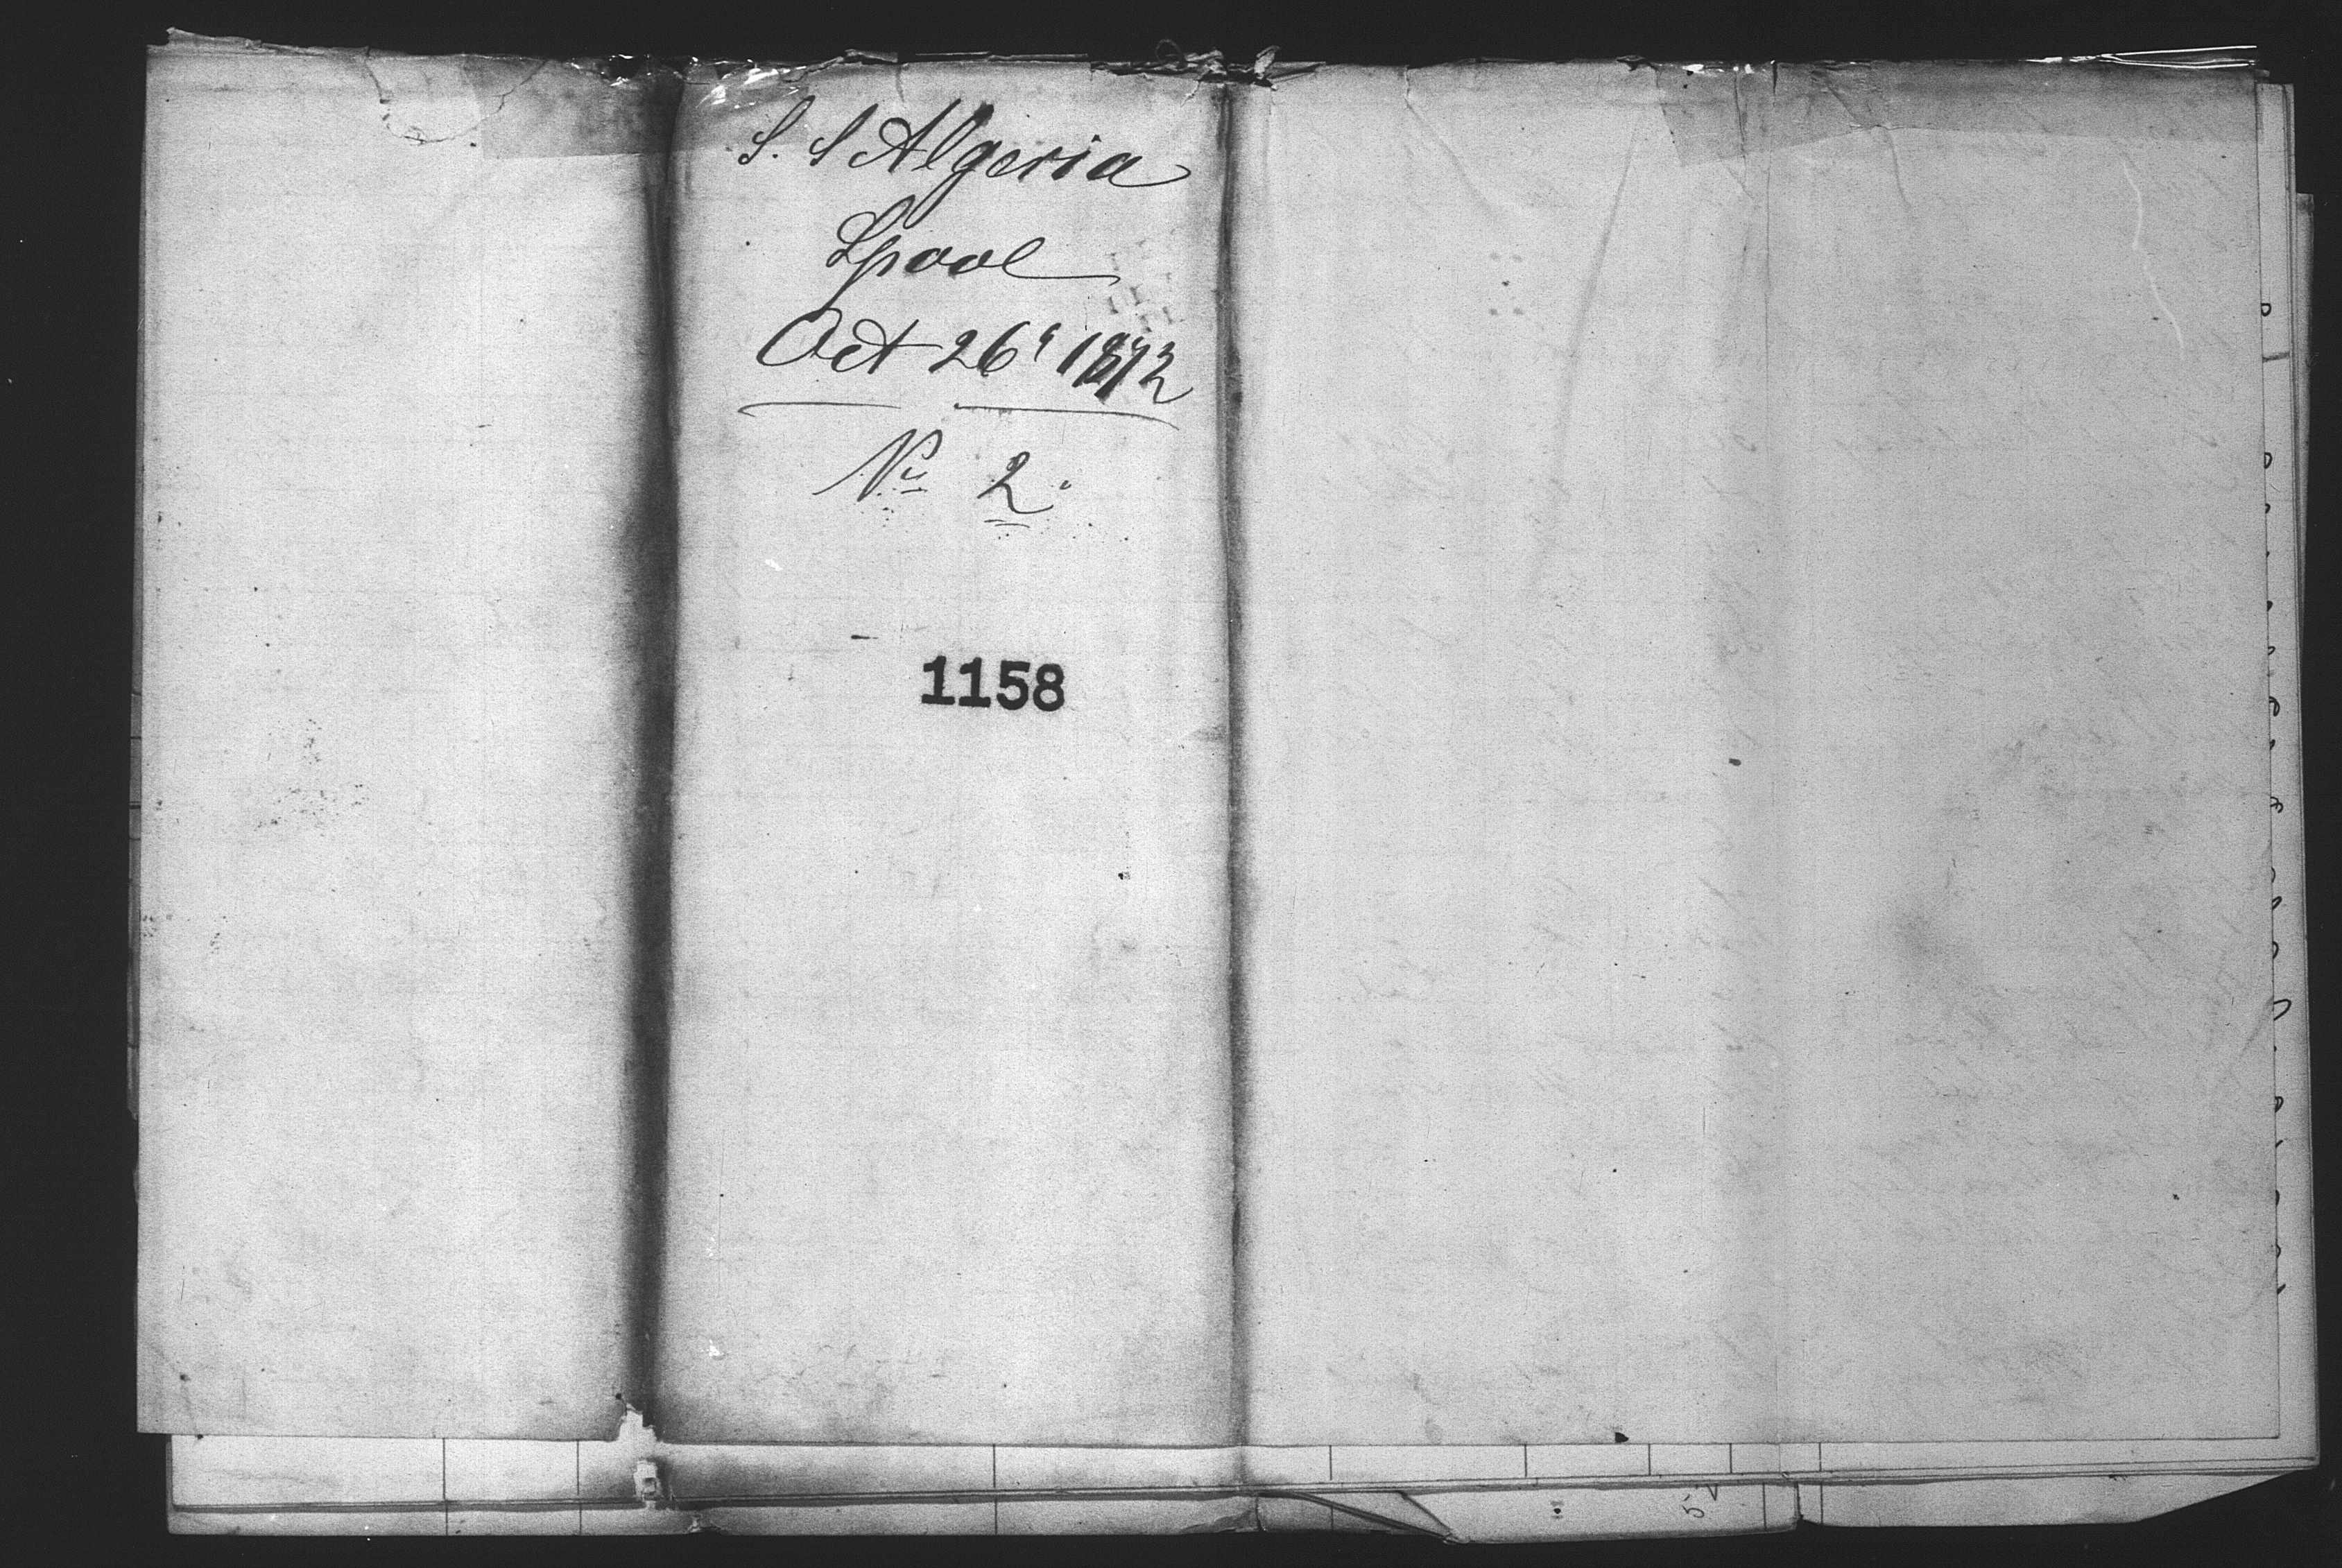 S. S Algeria
Lpool
Oct 26" 1872
No 2.
1158